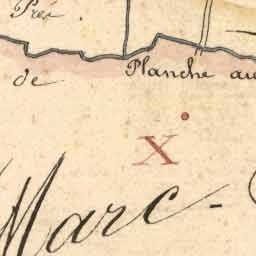 Prés.
de Planche au
X
Marc-